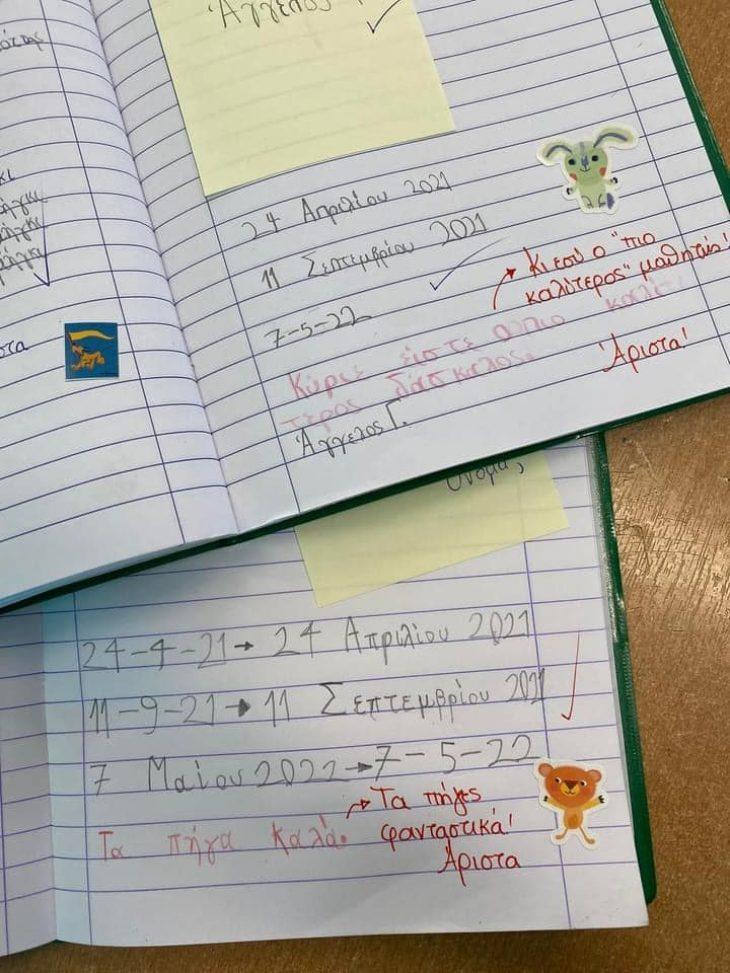 Άγγελος
24 Απριλίου 2021
11 Σεπτεμβρίου 2021
7-5-22
Κι εσύ ο "πιο
καλύτερος" μαθητής!
Κύριε είστε ο πιο καλί
τερος δάσκαλος.
Άριστα!
Άγγελος Γ.
Όνομα,
24-4-21→ 24 Απριλίου 2021
11-9-21→ 11 Σεπτεμβρίου 2021
7 Μαΐου 2022→7-5-22
Τα πήγα καλά.
→ Τα πήγες
φανταστικά!
Άριστα